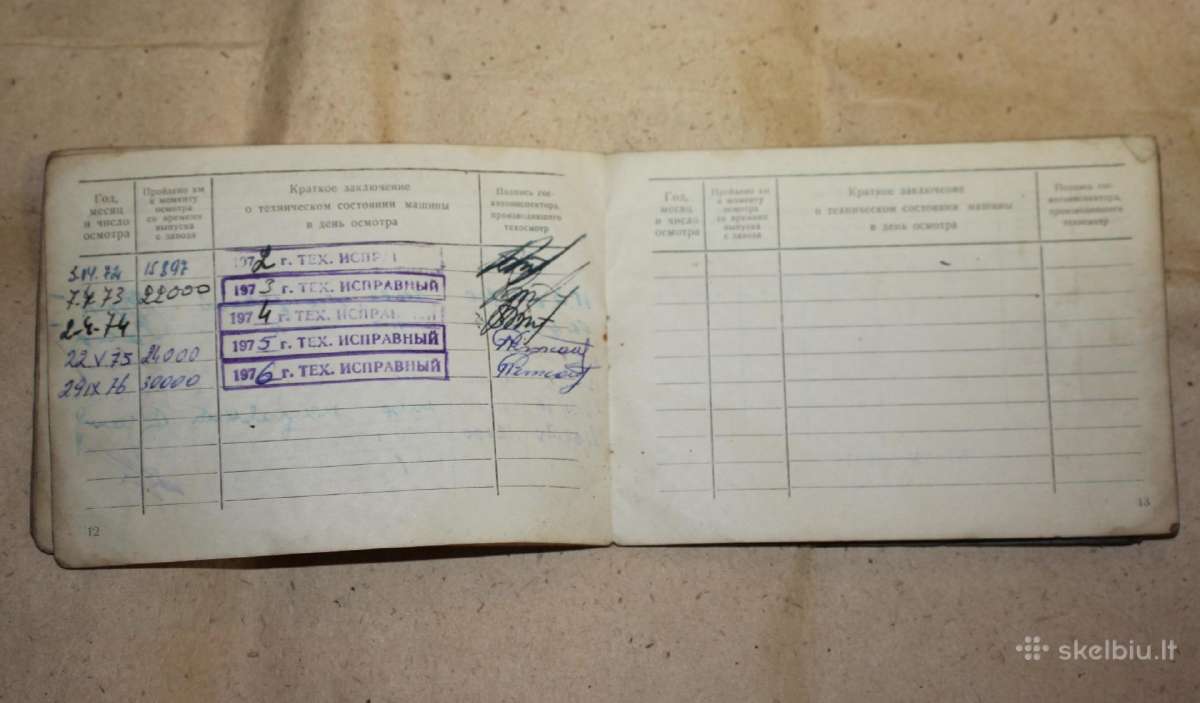 Год, месяц и число осмотра
Пройдено км к моменту осмотра со времени выпуска с завода
Краткое заключение о техническом состоянии машины в день осмотра
Подпись гос-автоинспектора, производившего техосмотр
15897 1972 г. ТЕХ. ИСПР
7.4.73 22000 1973 г. ТЕХ. ИСПРАВНЫЙ
2-4-74 1974 г. ТЕХ. ИСПРАВНЫЙ
22 V 75 24000 1975 г. ТЕХ. ИСПРАВНЫЙ
29 IX 76 30000 1976 г. ТЕХ. ИСПРАВНЫЙ
12
Год, месяц и число осмотра
Пройдено км к моменту осмотра со времени выпуска с завода
Краткое заключение о техническом состоянии машины в день осмотра
Подпись гос-автоинспектора, производившего техосмотр
13
skelbiu.lt